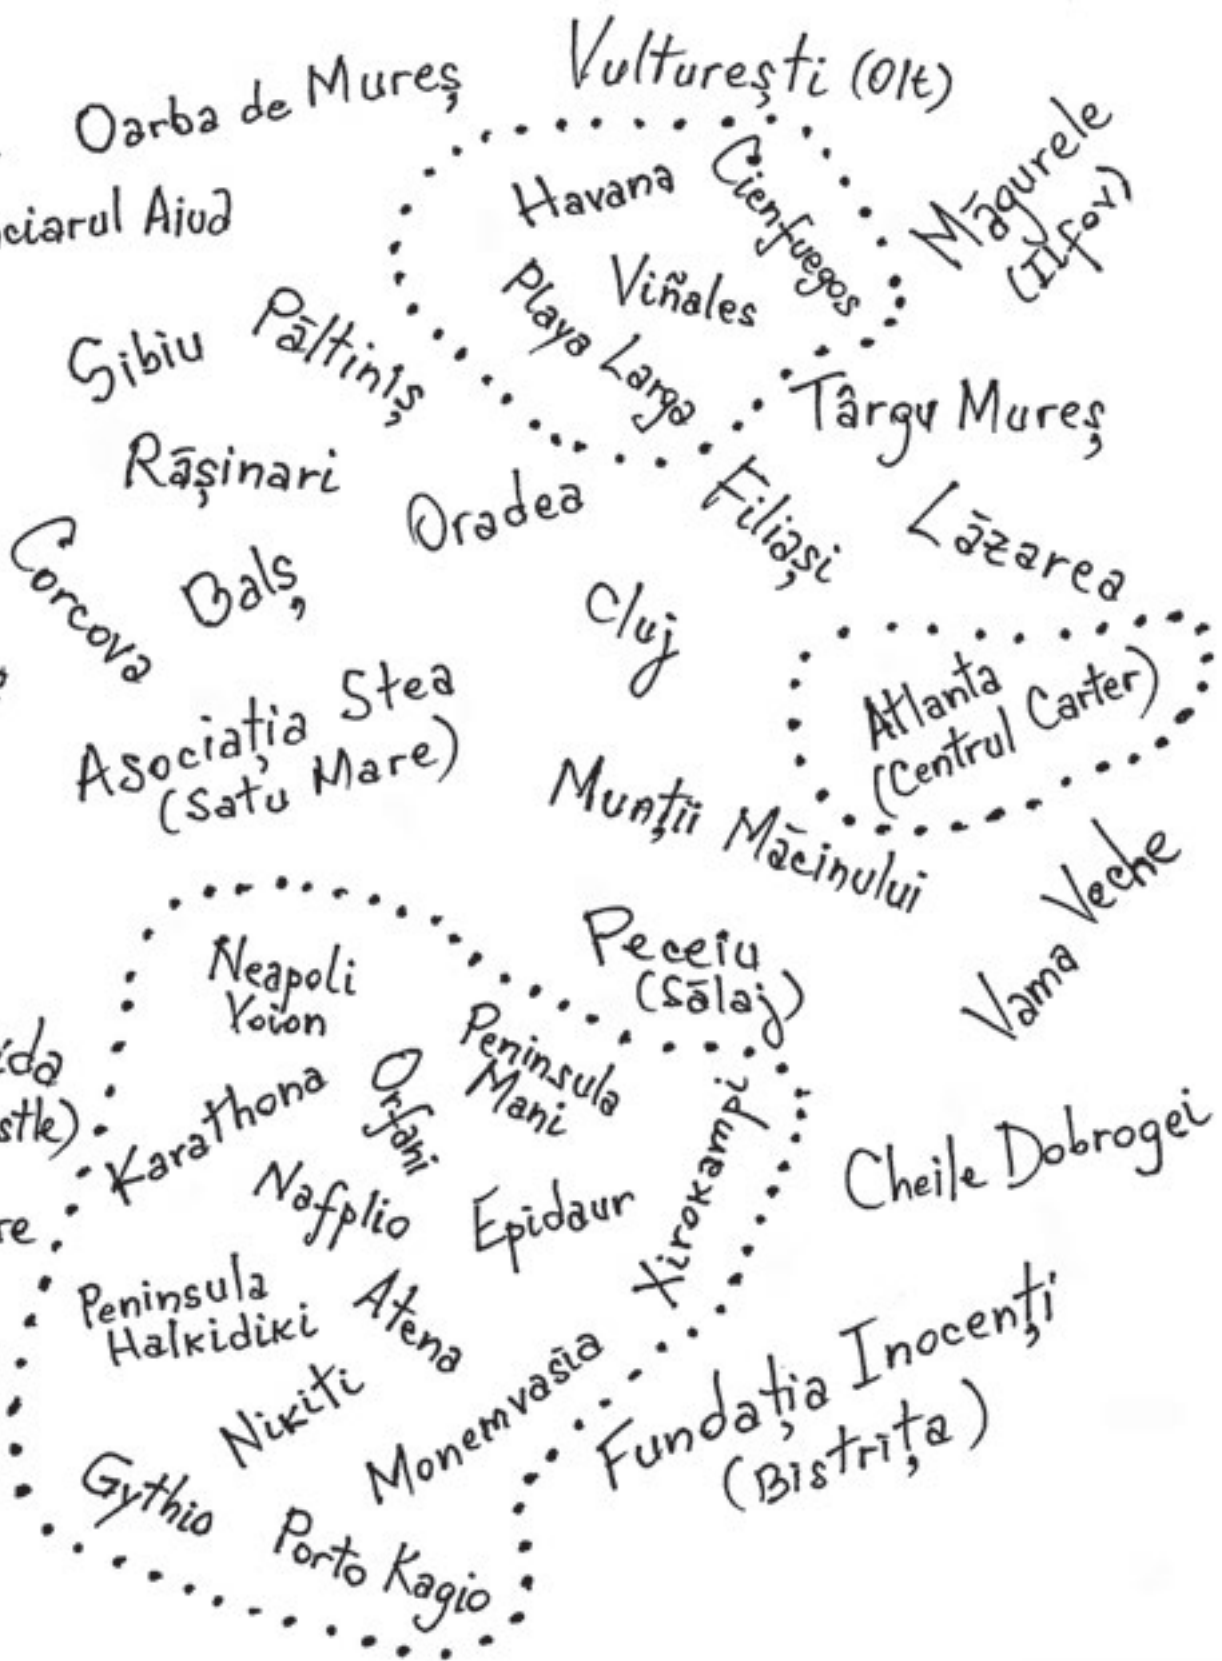 Oarba de Mureș
Vulturești (Olt)
Măgurele
(Ilfov)
ciarul Aiud
Havana
Cienfuegos
Viñales
Playa Larga
Sibiu
Păltiniș
Târgu Mureș
Rășinari
Oradea
Filiași
Lăzarea
Corcova
Balș
Cluj
Atlanta
(Centrul Carter)
Asociația Stea
(Satu Mare)
Munții Măcinului
Vama Veche
Neapoli
Voion
Peceiu
(Sălaj)
Peninsula
Mani
Orfani
ida
stle)
Karathona
Xirokampi
Cheile Dobrogei
Nafplio
Epidaur
re
Peninsula
Halkidiki
Atena
Nikiti
Monemvasia
Fundația Inocenți
(Bistrița)
Gythio
Porto Kagio